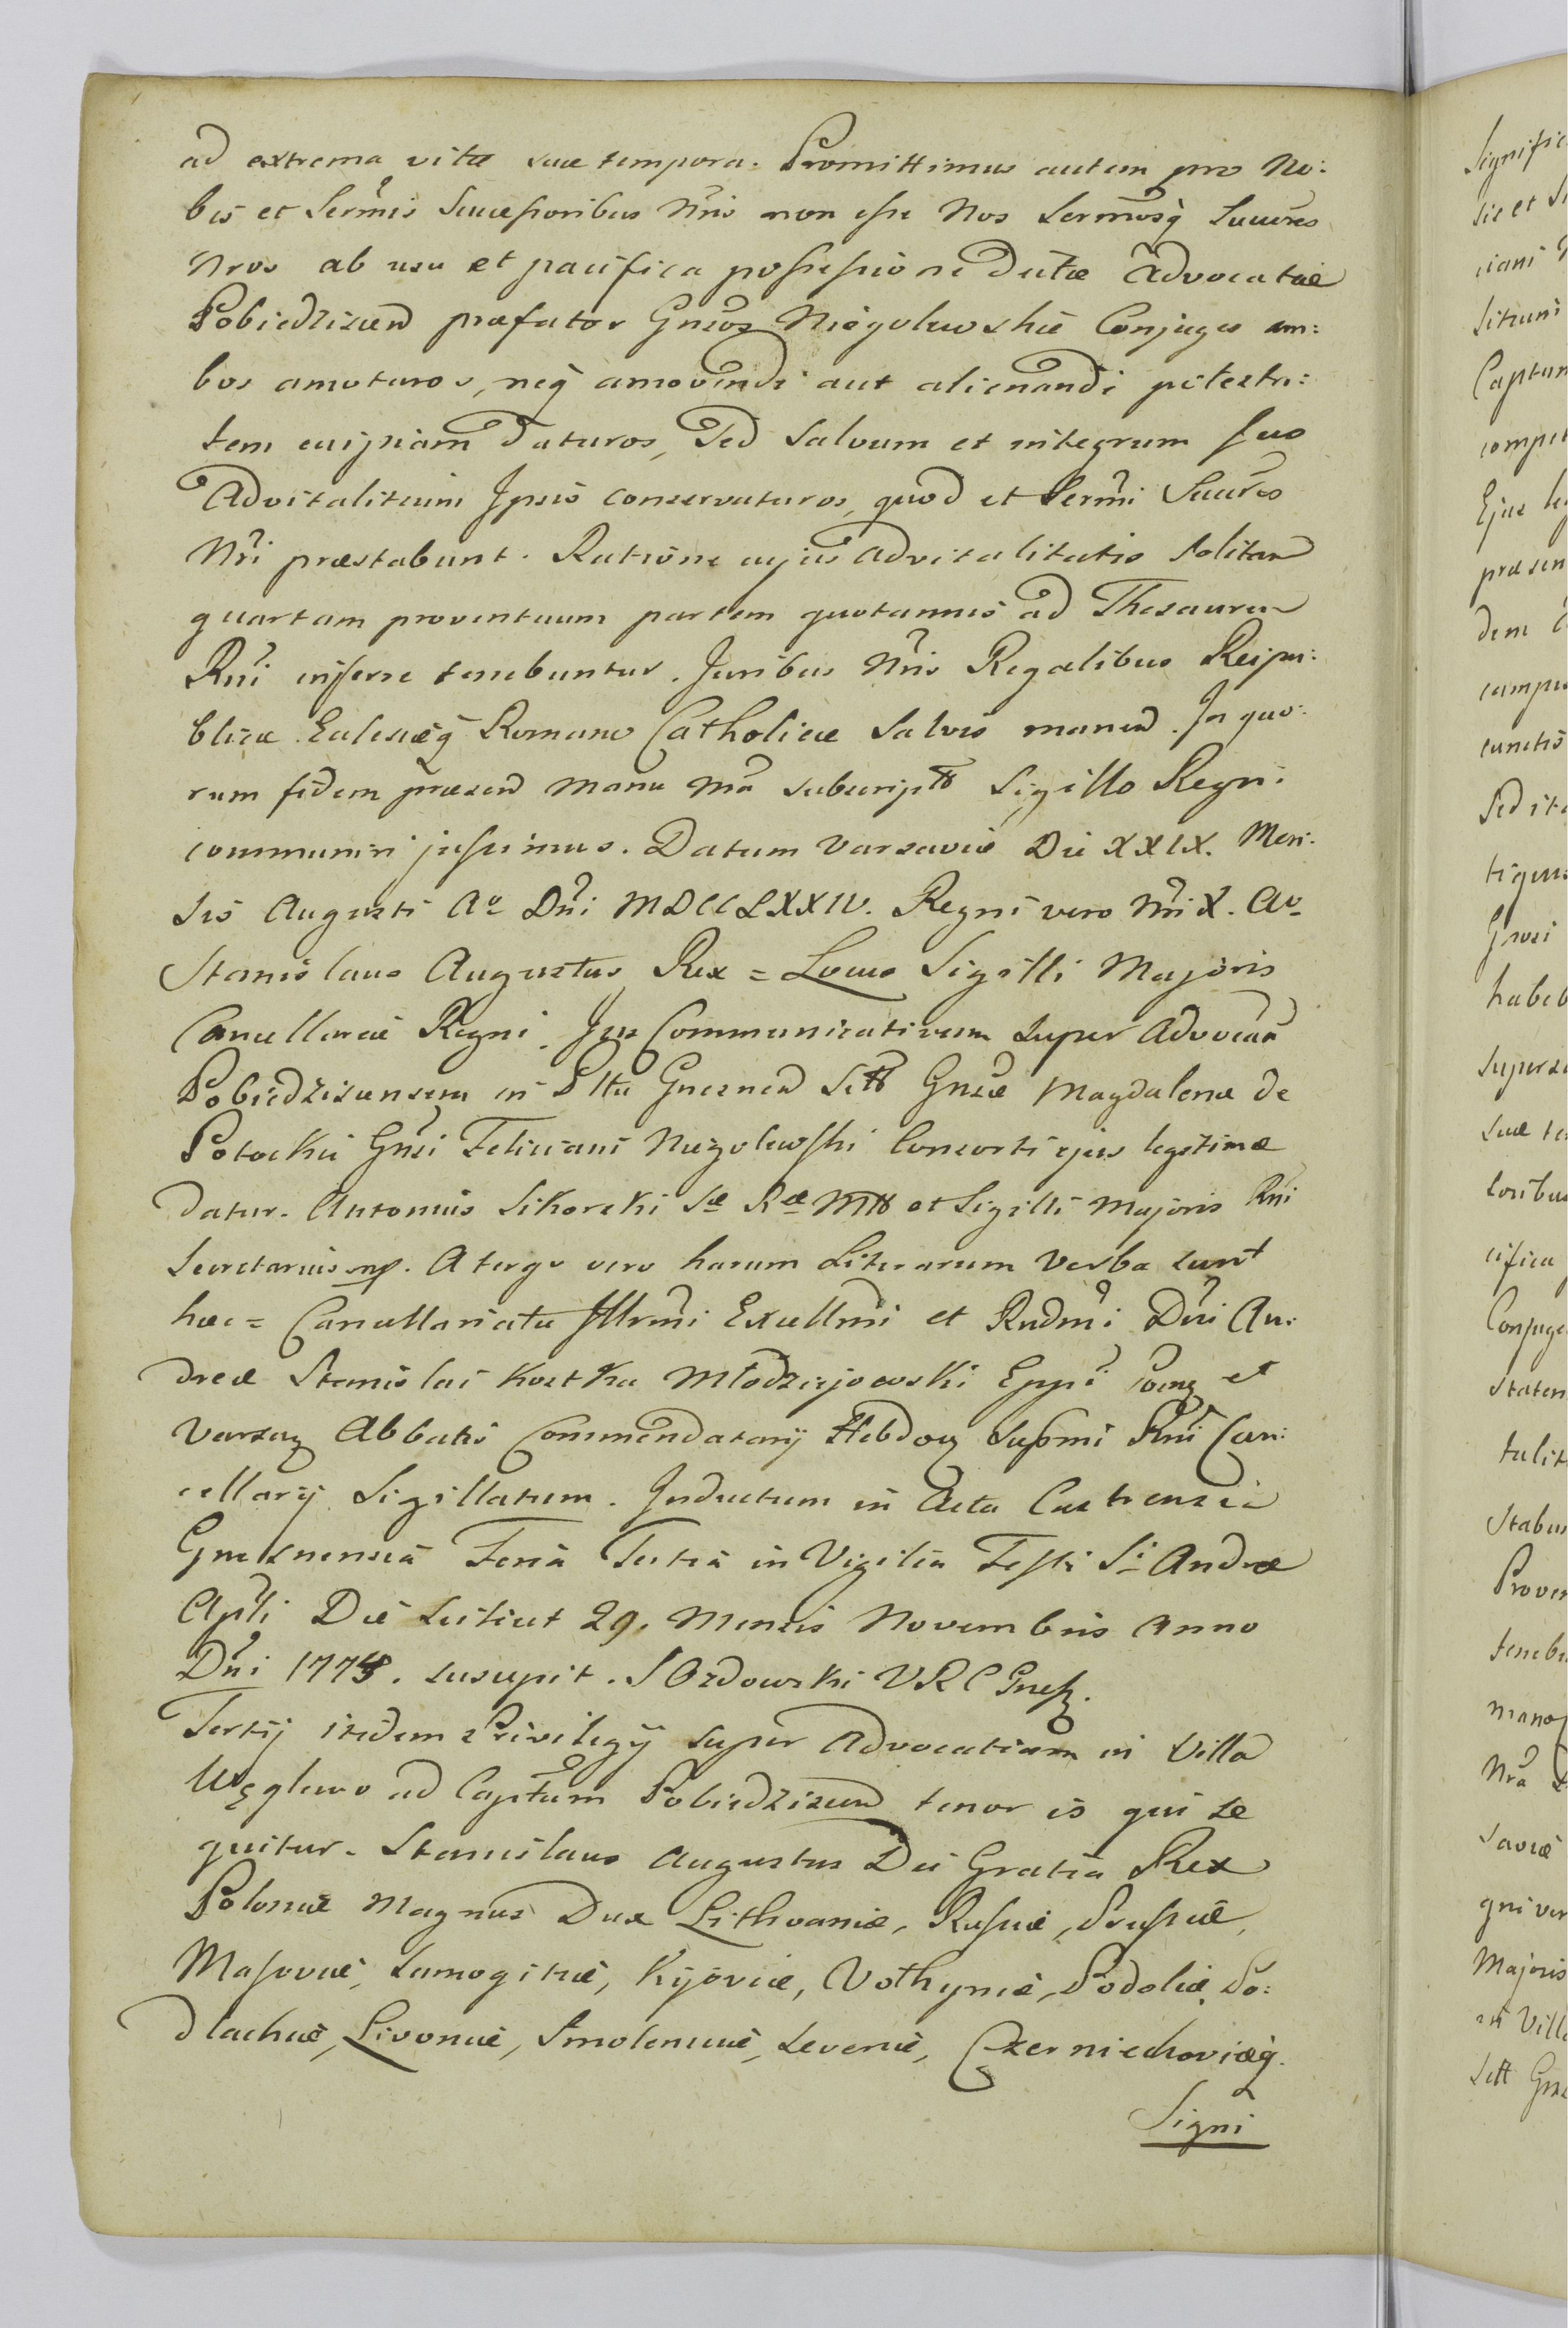 ad extrema vitæ suæ tempora. Promittimus autem pro No:
bis et Sermis Successoribus Nris non esse Nos Sermosq Succres
Nros ab usu et pacifica possessione dictæ Advocatiæ
Pobiedziscen præfatos Gnsos Niegolewskie Conjuges am:
bos amoturos, neq amovendi aut alienandi potesta:
tem cuipiam daturos, Sed salvum et integrum jus
Advitalitium Ipsis conservaturos, quod et Sermi Succres
Nri præstabunt. Ratione cujus advitalitatis solitam
quartam proventuum partem quotannis ad Thesaurum
Rni inferre tenebuntur. Juribus Nris Regalibus Reipu:
blicæ Eclesiæq Romano Catholicæ salvis manen. In quo:
rum fidem præsen manu Nra subscript Sigillo Regni
communiri jussimus. Datum Varsaviæ Die XXIX. Men:
sis Augusti Ao Dni MDCCLXXIV. Regni vero Nri X. Ao
Stanislaus Augustus Rex = Locus Sigilli Majoris
Cancellariæ Regni. Jus Communicativum super Advocam
Pobiedziscensem in Pttu Gnesnen Sitt Gnsæ Magdalenæ de
Potockie Gnsi Feliciani Niegolewski Consorti ejus legitimæ
datur. Antonius Sikorski Sæ Ræ Mtt et Sigilli Majoris Rni
Secretarius mp. A tergo vero harum Literarum Verba sunt
hæc = Cancellariatu Illrmi Excellmi et Rndmi Dni An:
dreæ Stanislai Kostka Młodziejowski Eppi Posnz et
Varsavz Abbatis Commendatarij Hebdovz Supmi Rni Can:
cellarij Sigillatum. Inductum in Acta Castrensia
Gnesnensia Feria Tertia in Vigilia Festi Si Andreæ
Apli Die scilicet 29. Mensis Novembris Anno
Dni 1774. suscepit. S Ozdowski VRC Gnesz.
Tertij itidem Privilegij super Advocatiam in Villa
Węglewo ad Captum Pobiedziscen tenor is qui se
quitur. Stanislaus Augustus Dei Gratia Rex
Poloniæ Magnus Dux Lithvaniæ, Russiæ, Prussiæ,
Masoviæ, Samogitiæ, Kijoviæ, Volhyniæ, Podoliæ, Po:
dlachiæ, Livoniæ, Smolensciæ, Severiæ, Czerniechoviæq.
Signi